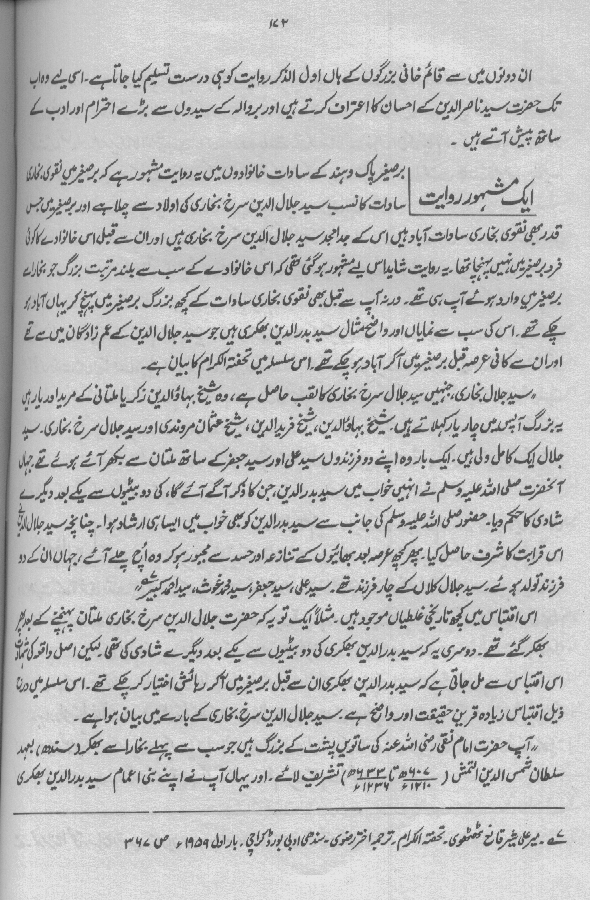 ۱۷۲
ان دونوں میں سے قائم خانی بزرگوں کے ہاں اول الذکر روایت کو ہی درست تسلیم کیا جاتا ہے۔ اسی لیے وہ اب
تک حضرت سید ناصر الدین کے احسان کا اعتراف کرتے ہیں اور بروالہ کے سیدوں سے بڑے احترام اور ادب کے
ساتھ پیش آتے ہیں ۔
ایک مشہور روایت
برصغیر پاک و ہند کے سادات خانوادوں میں یہ روایت مشہور رہے کہ برصغیر میں نقوی بخاری
سادات کا نسب سید جلال الدین سرخ بخاری کی اولاد سے چلا ہے اور برصغیر میں جس
قدر بھی نقوی بخاری سادات آباد ہیں اس کے جد امجد سید جلال الدین سرخ بخاری ہیں اور ان سے قبل اس خانوادے کا کوئی
فرد برصغیر میں نہیں پہنچا تھا۔ یہ روایت شاید اس لیے مشہور ہو گئی تھی کہ اس خانوادے کے سب سے بلند مرتبت بزرگ جو بخارا سے
برصغیر میں وارد ہوئے آپ ہی تھے۔ ورنہ آپ سے قبل بھی نقوی بخاری سادات کے کچھ بزرگ برصغیر میں پہنچ کر یہاں آباد ہو
چکے تھے۔ اس کی سب سے نمایاں اور واضح مثال سید بدر الدین بھکری ہیں جو سید جلال الدین کے عم زادگان میں سے تھے
اور ان سے کافی عرصہ قبل برصغیر میں آکر آباد ہو چکے تھے۔ اس سلسلہ میں تحفۃ الکرام کا بیان ہے۔
"سید جلال بخاری، جنہیں سید جلال سرخ بخاری کا لقب حاصل ہے، وہ شیخ بہاؤ الدین زکریا ملتانی کے مرید اور یار ہیں
یہ بزرگ آپس میں چار یار کہلاتے ہیں۔ شیخ بہاؤ الدین، شیخ فرید الدین، شیخ عثمان مروندی اور سید جلال سرخ بخاری۔ سید
جلال ایک کامل ولی ہیں۔ ایک بار وہ اپنے دو فرزندوں سید علی اور سید جعفر کے ساتھ ملتان سے بکھر آئے ہوئے تھے جہاں
آنحضرت صلی اللہ علیہ وسلم نے انہیں خواب میں سید بدر الدین، جن کا ذکر آگے آئے گا، کی دو بیٹیوں سے یکے بعد دیگرے
شادی کا حکم دیا۔ حضور صلی اللہ علیہ وسلم کی جانب سے سید بدر الدین کو بھی خواب میں ایسا ہی ارشاد ہوا۔ چنانچہ سید جلال الدین نے
اس قرابت کا شرف حاصل کیا۔ پھر کچھ عرصہ بعد بھائیوں کے تنازعہ اور حسد سے مجبور ہو کر وہ اُچ چلے آئے، جہاں ان کے دو
فرزند تولد ہوئے۔ سید جلال کلاں کے چار فرزند تھے۔ سید علی، سید جعفر، سید محمد غوث، سید احمد کبیر
اس اقتباس میں کچھ تاریخی غلطیاں موجود ہیں۔ مثلاً ایک تو یہ کہ حضرت جلال الدین سرخ بخاری ملتان پہنچنے کے بعد
بھکر گئے تھے۔ دوسری یہ کہ سید بدر الدین بھکری کی دو بیٹیوں سے یکے بعد دیگرے شادی کی تھی۔ لیکن اصل واقعہ کی
اس اقتباس سے مل جاتی ہے کہ سید بدر الدین بھکری ان سے قبل برصغیر میں آکر رہائش اختیار کر چکے تھے۔ اس سلسلہ میں
ذیل اقتباس زیادہ قرین حقیقت اور واضح ہے۔ سید جلال الدین سرخ بخاری کے بارے میں بیان ہوا ہے۔
"آپ حضرت امام نقی رضی اللہ عنہ کی ساتویں پشت کے بزرگ ہیں جو سب سے پہلے بخارا سے بھکر (سندھ) بعہد
سلطان شمس الدین التمش (۶۰۷ھ/۱۲۱۰ء تا ۶۳۳ھ/۱۲۳۶ء) تشریف لائے۔ اور یہاں آپ نے اپنے بنی اعمام سید بدر الدین بھکری
۷۔ میر علی شیر قانع ٹھٹھوی۔ تحفۃ الکرام۔ ترجمہ اختر رضوی۔ سندھی ادبی بورڈ کراچی۔ بار اول ۱۹۵۹ء ص ۳۶۷